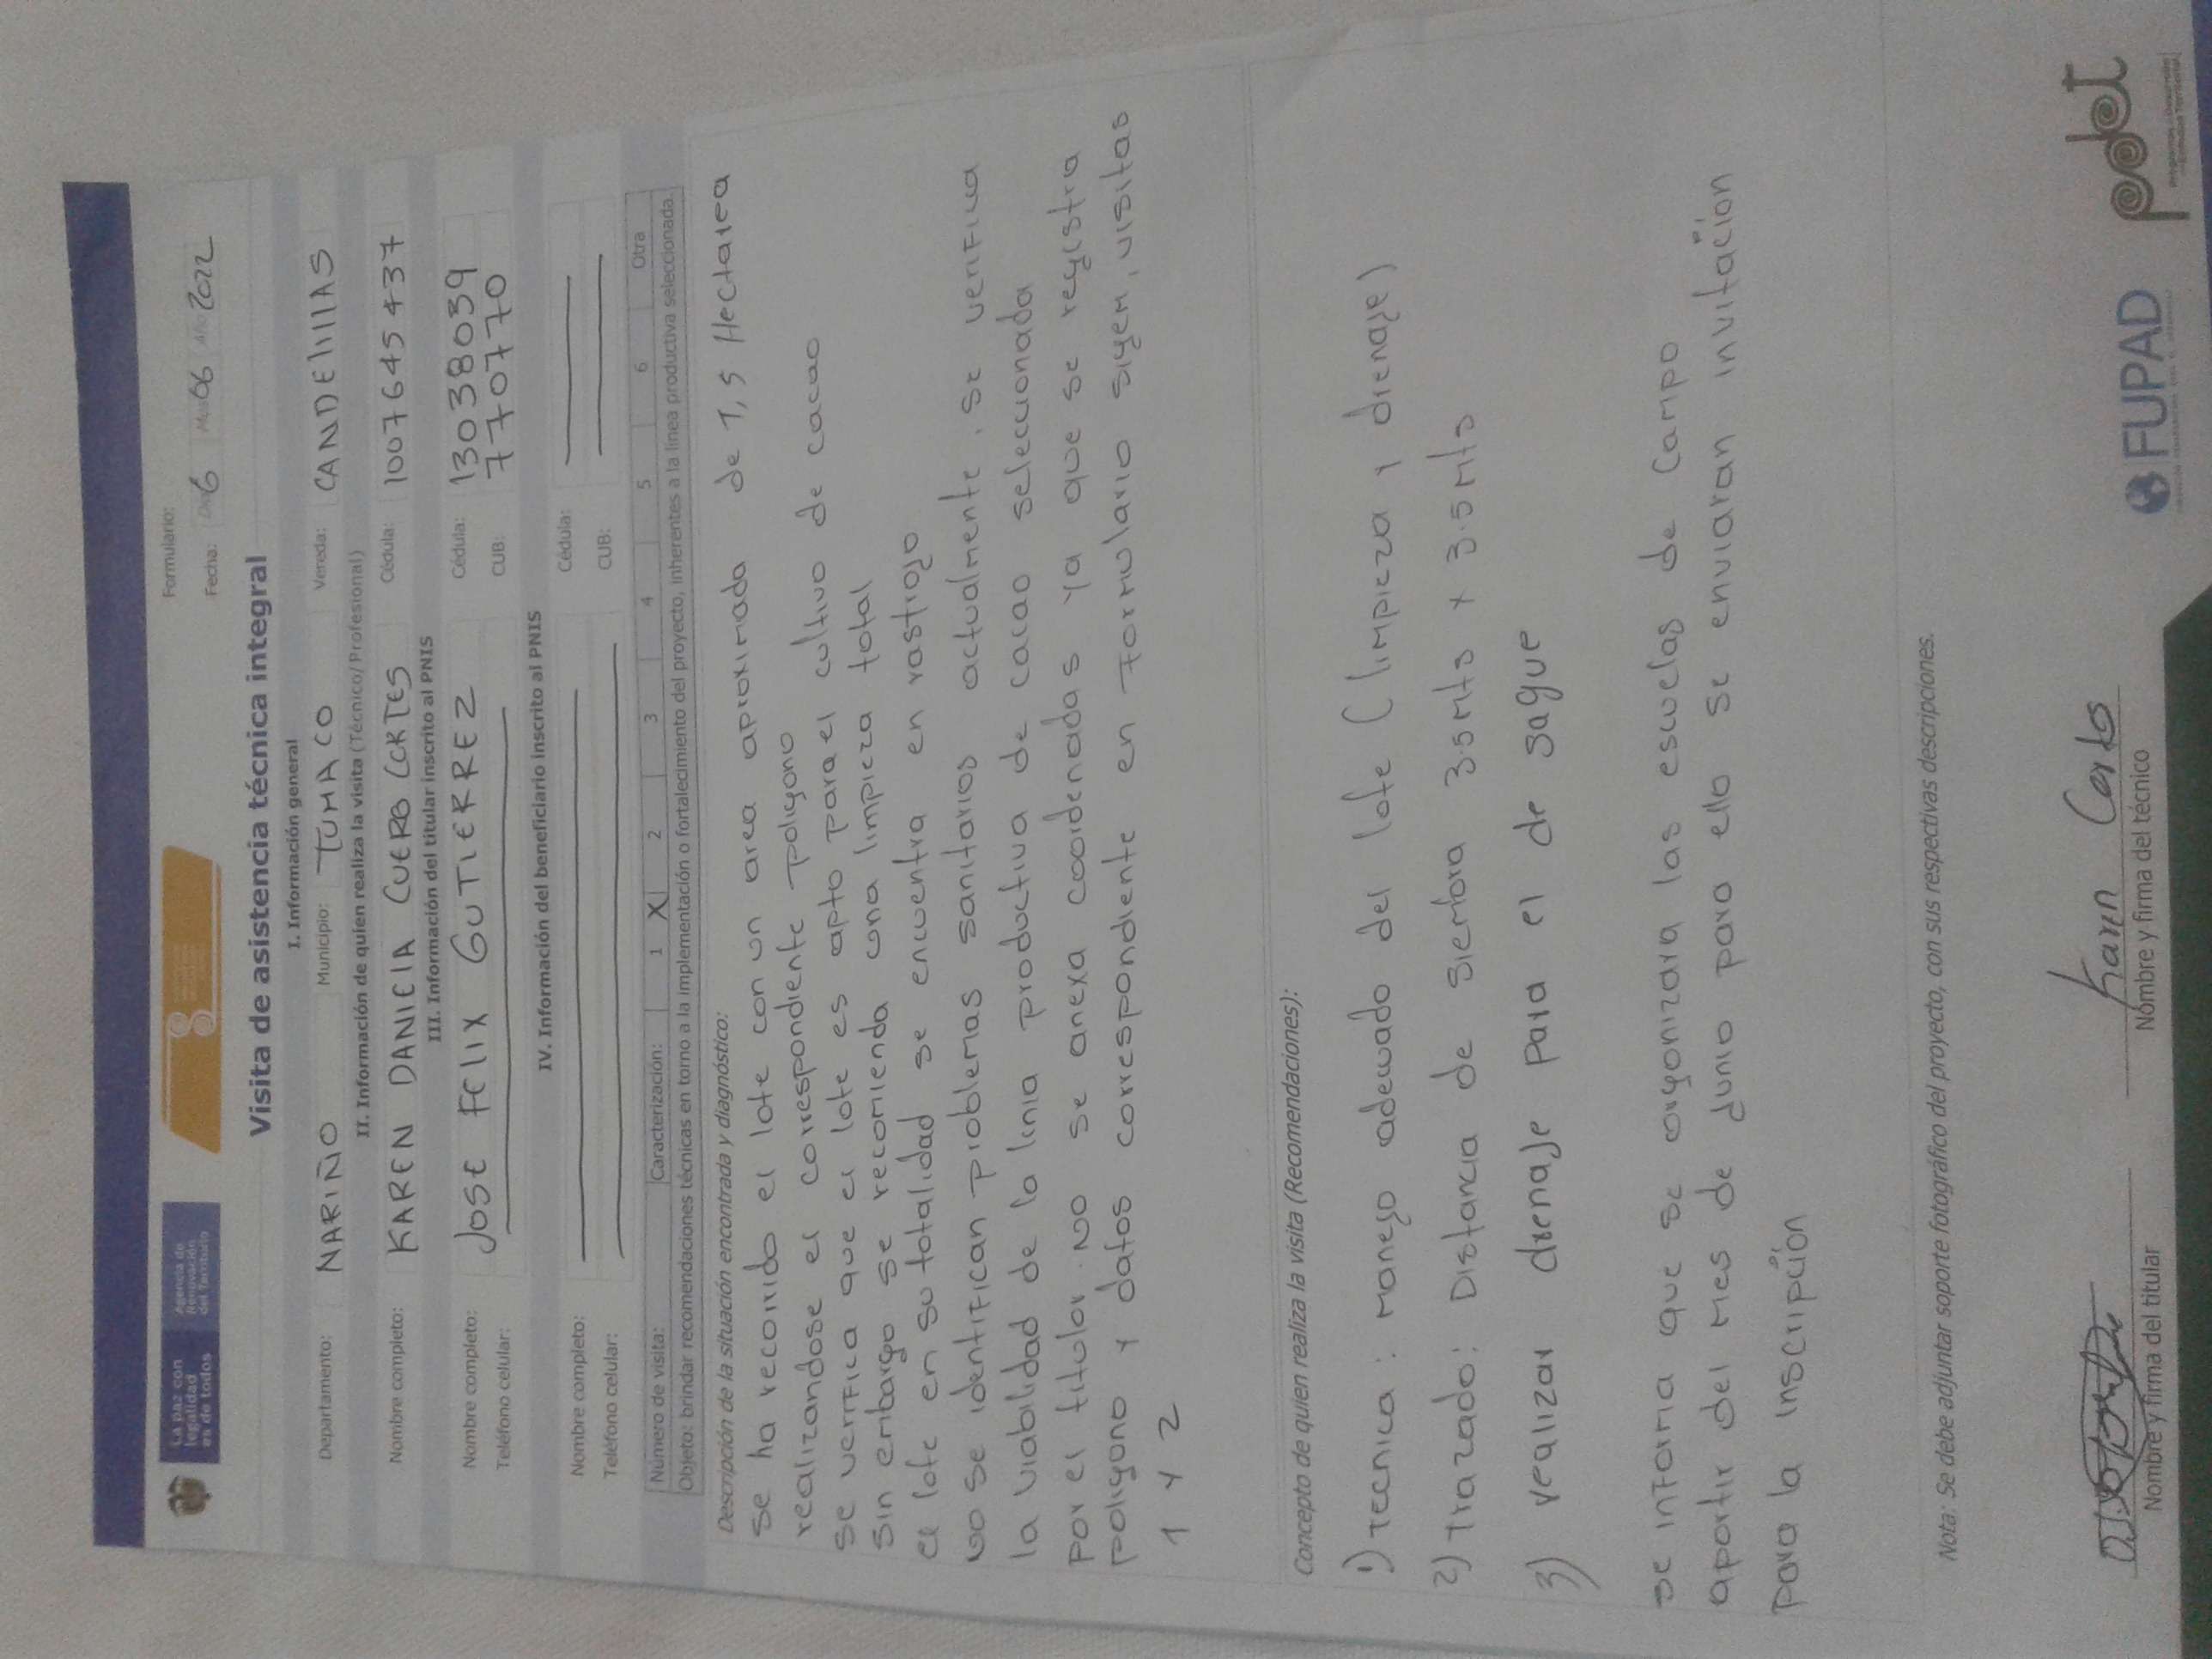 La paz con
legalidad
es de todos
Agencia de
Renovación
del Territorio
Formulario:
Fecha: Día 6 Mes 06 Año 2022
Visita de asistencia técnica integral
I. Información general
Departamento: NARIÑO Municipio: TUMACO Vereda: CANDElillAS
II. Información de quien realiza la visita (Técnico/Profesional)
Nombre completo: KAREN DANIElA CUERO CORTES Cédula: 1007645437
III. Información del titular inscrito al PNIS
Nombre completo: JOSE FElIX GUTIERREZ Cédula: 13038039
Teléfono celular: CUB: 770770
IV. Información del beneficiario inscrito al PNIS
Nombre completo: Cédula:
Teléfono celular: CUB:
Número de visita: Caracterización: 1 X 2 3 4 5 6 Otra
Objeto: brindar recomendaciones técnicas en torno a la implementación o fortalecimiento del proyecto, inherentes a la línea productiva seleccionada.
Descripción de la situación encontrada y diagnóstico:
se ha recorrido el lote con un area aproximada de 1,5 Hectarea
realizandose el correspondiente poligono
se verifica que el lote es apto para el cultivo de cacao
sin embargo se recomienda una limpieza total
el lote en su totalidad se encuentra en rastrojo
no se identifican problemas sanitarios actualmente, se verifica
la viabilidad de la linia productiva de cacao seleccionada
por el titular. No se anexa coordenadas ya que se registra
poligono y datos correspondiente en formulario sigem, visitas
1 y 2
Concepto de quien realiza la visita (Recomendaciones):
1) tecnica: manejo adecuado del lote (limpieza y drenaje)
2) trazado: Distancia de siembra 3.5 mts x 3.5 mts
3) realizar drenaje para el de sague
se informa que se organizara las escuelas de campo
apartir del mes de junio para ello se enviaran invitación
para la inscripción
Nota: Se debe adjuntar soporte fotográfico del proyecto, con sus respectivas descripciones.
Karen Cortes
Nombre y firma del titular Nombre y firma del técnico
FUPAD pdet